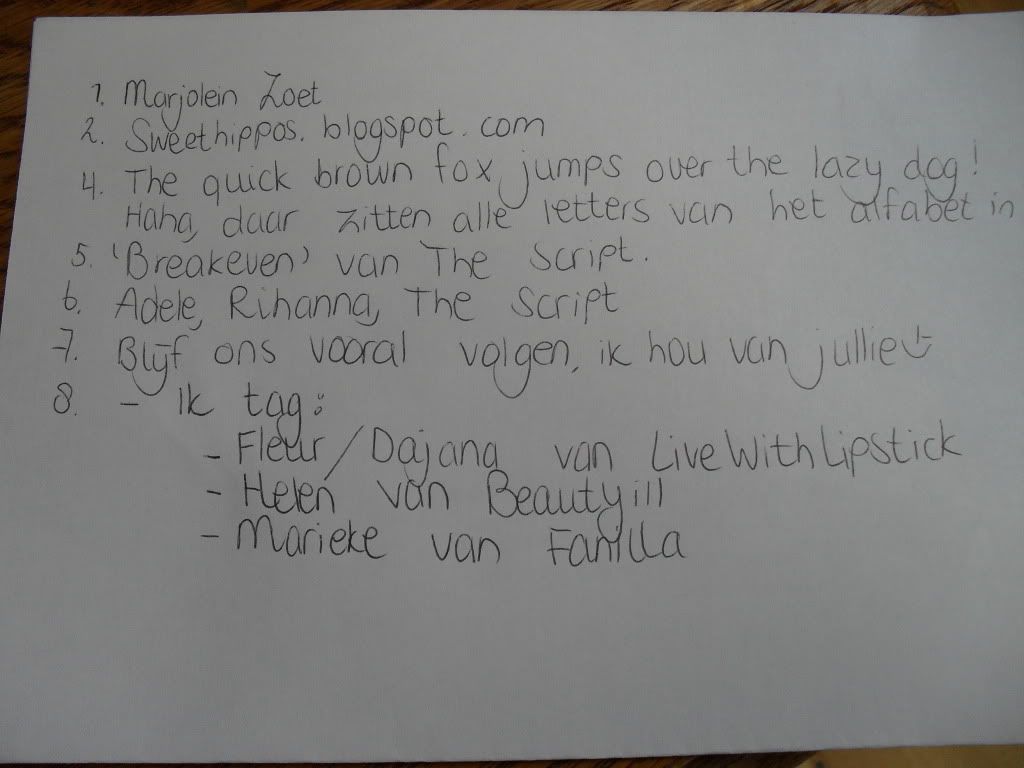 1. Marjolein Zoet
2. Sweethippos.blogspot.com
4. The quick brown fox jumps over the lazy dog!
Haha, daar zitten alle letters van het alfabet in
5. 'Breakeven' van The Script.
6. Adele, Rihanna, The Script
7. Blijf ons vooral volgen, ik hou van jullie :)
8. - Ik tag:
- Fleur/Dajana van LiveWithLipstick
- Helen van Beautyill
- Marieke van Fanilla